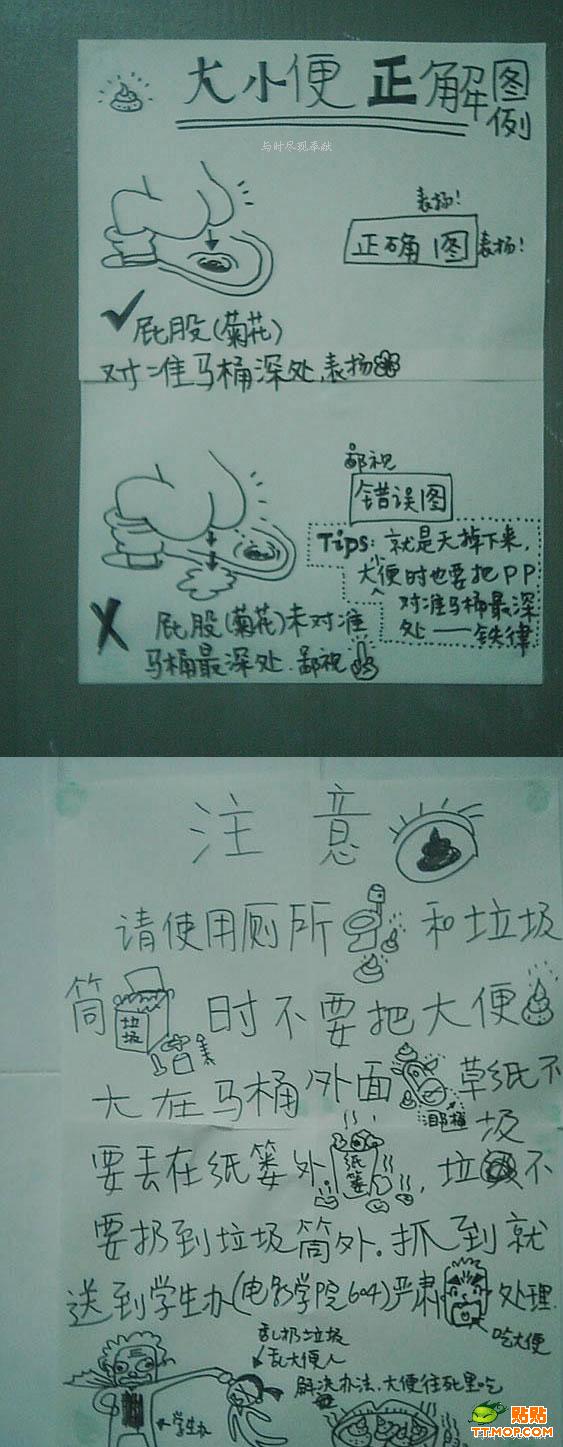 大小便正解图例
与时尽现奉献
表扬!
正确图 表扬!
屁股(菊花)
对准马桶深处,表扬
鄙视
错误图
Tips: 就是天掉下来,
大便时也要把PP
对准马桶最深
处——铁律
屁股(菊花)未对准
马桶最深处.鄙视
注意
请使用厕所和垃圾
筒时不要把大便
垃圾
大在马桶外面草纸不
马桶
要丢在纸篓外,垃圾不
纸篓
要扔到垃圾筒外.抓到就
送到学生办(电影学院604)严肃处理.
吃大便
乱扔垃圾
乱大便人
解决办法:大便往死里吃
学生办
贴贴
TT.MOP.COM